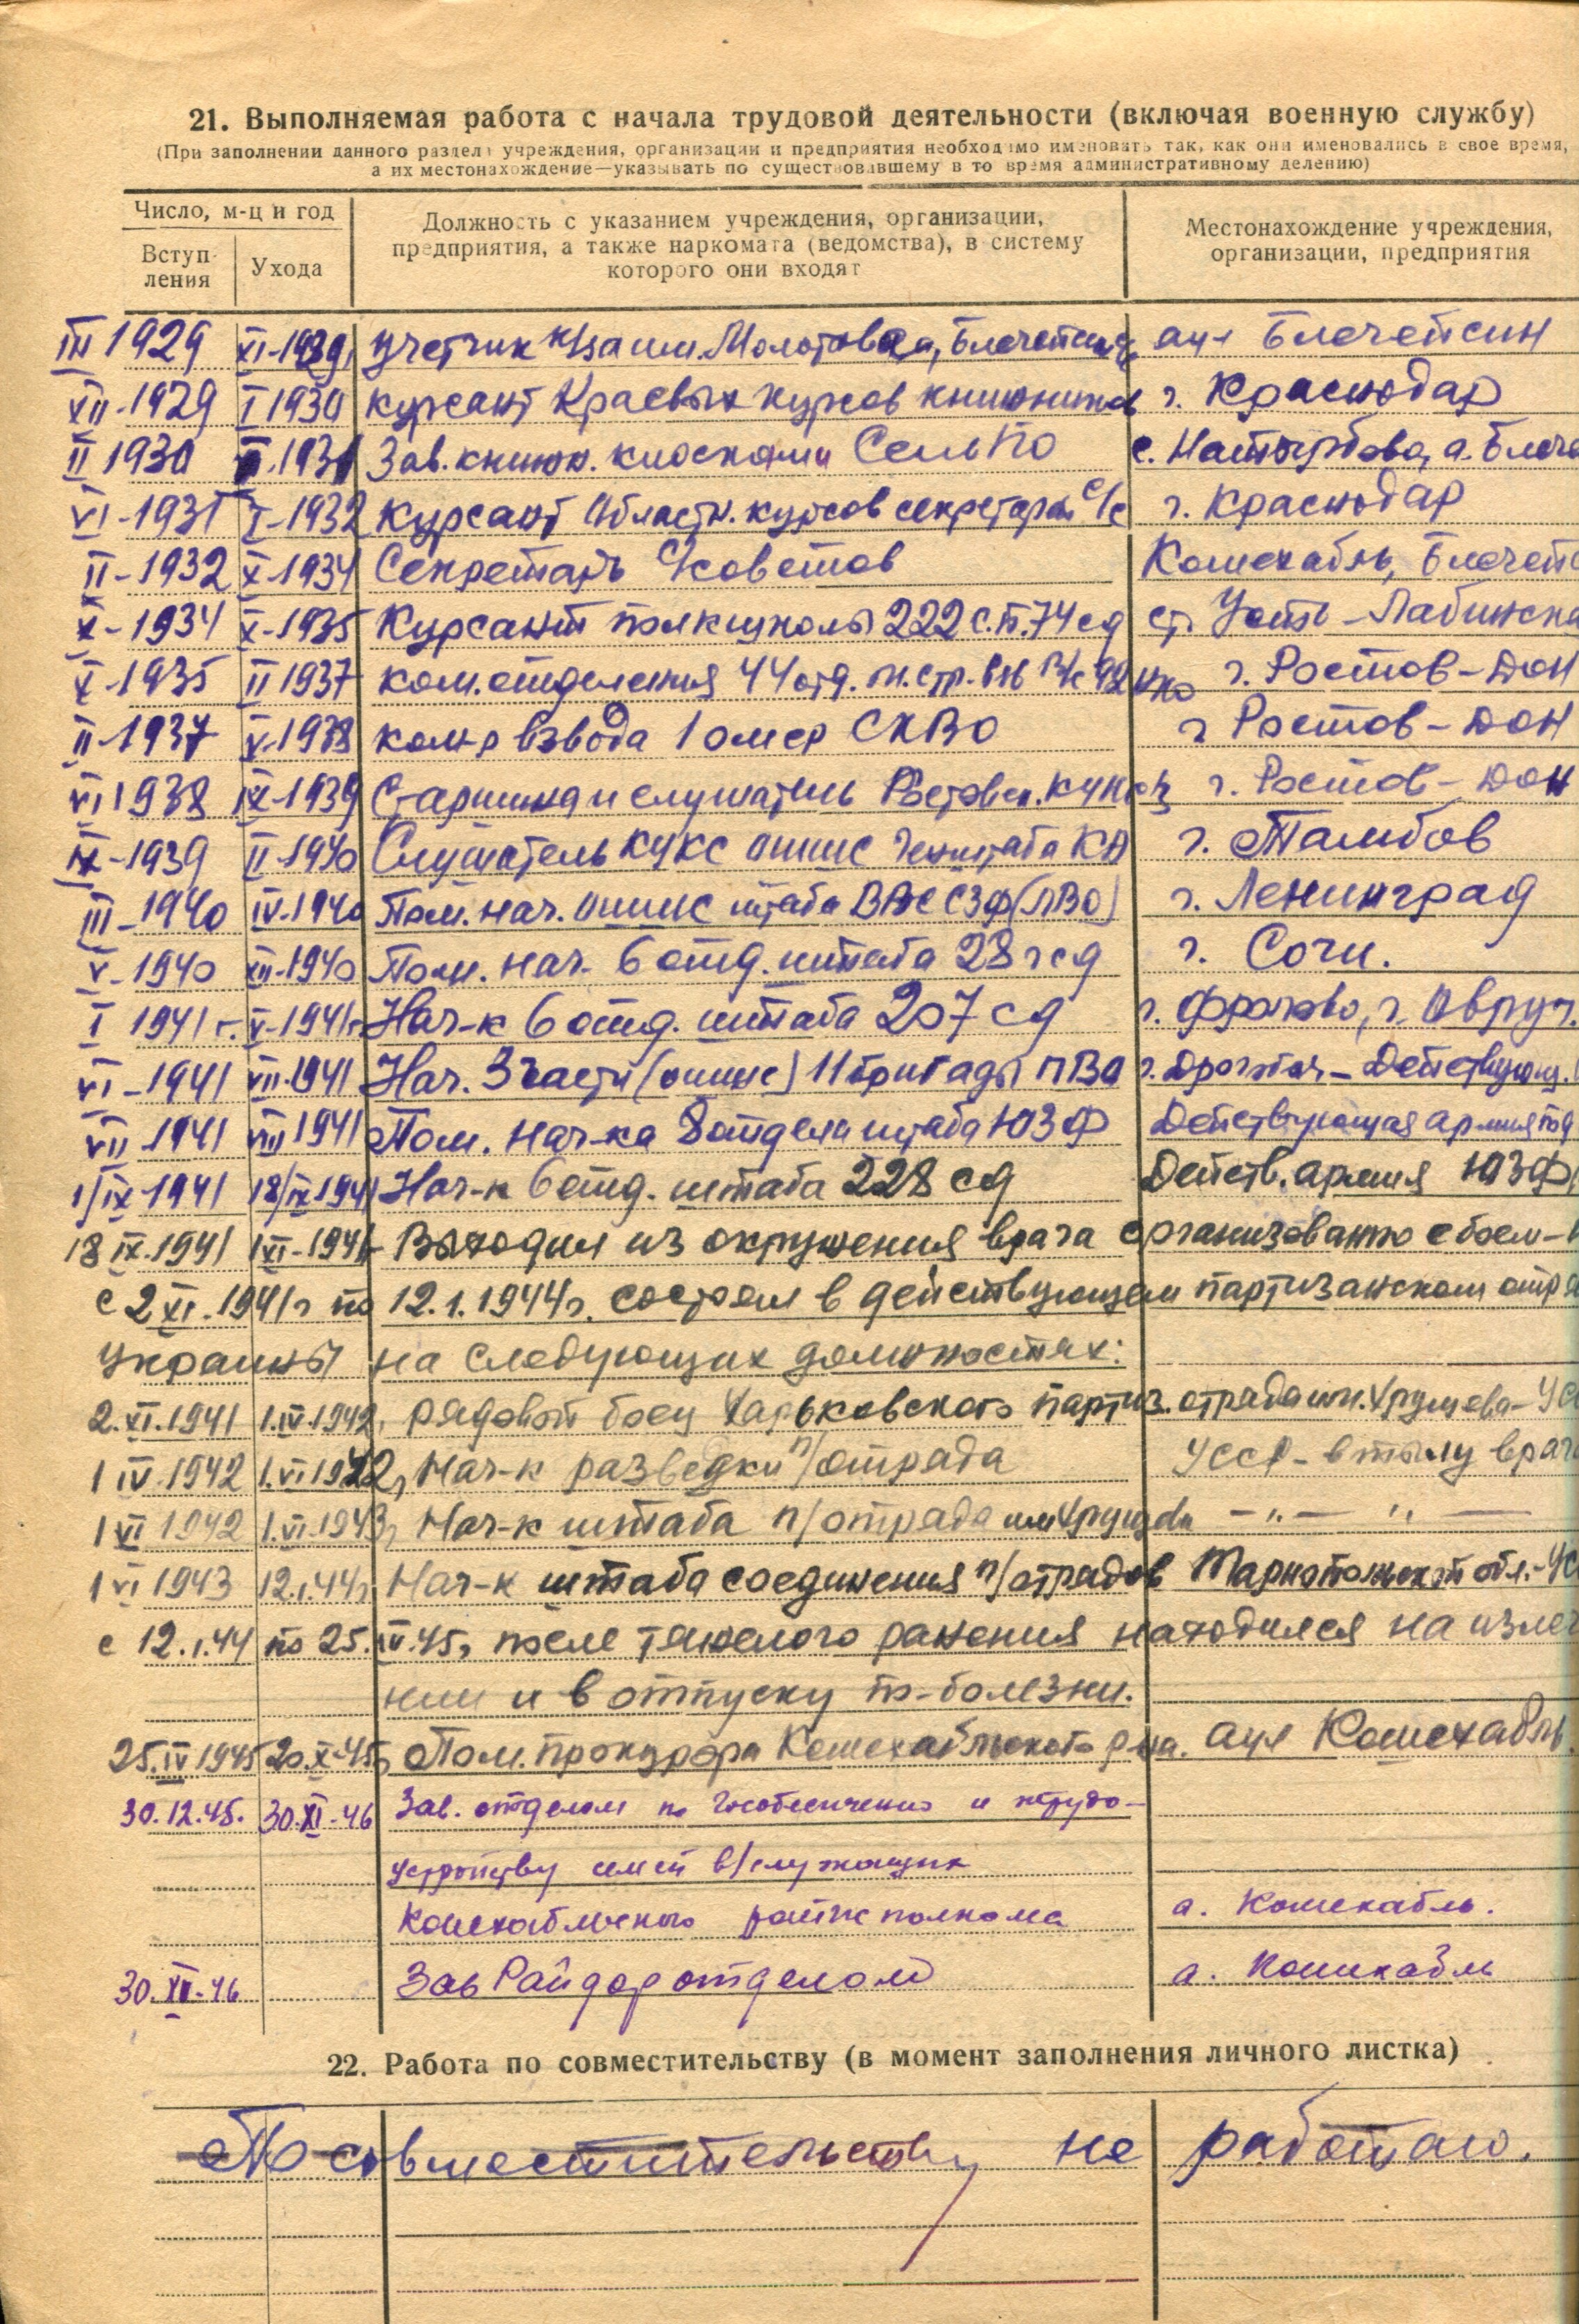 21. Выполняемая работа с начала трудовой деятельности (включая военную службу)
(При заполнении данного раздела учреждения, организации и предприятия необходимо именовать так, как они именовались в свое время,
а их местонахождение—указывать по существовавшему в то время административному делению)
Число, м-ц и год
Вступления
Ухода
Должность с указанием учреждения, организации,
предприятия, а также наркомата (ведомства), в систему
которого они входят
Местонахождение учреждения,
организации, предприятия
III 1929 XI-1929 учетчик к/за им. Молотова а, Блечепсин аул Блечепсин
XII-1929 I 1930 курсант Краевых курсов книжников г. Краснодар
II 1930 1931 Зав. книжн. киосками СельПО с. Натырбова, а. Блече
VI-1931 I-1932 Курсант Областн. курсов секретарей с/с г. Краснодар
II-1932 X-1934 Секретарь с/советов Кошехабль, Блечепс
X-1934 X-1935 Курсант полкшколы 222 с.п. 74 сд ст. Усть-Лабинска
X-1935 II 1937 ком. отделения 44 отд. г. Ростов-Дон
II-1937 V-1938 ком-р взвода СКВО г Ростов-Дон
VI 1938 IX-1939 Старшина и слушатель Ростовск. г. Ростов-Дон
IX-1939 II-1940 Слушатель КУКС Генштаба КА г. Тамбов
III-1940 IV-1940 Пом. нач. штаба СЗФ (ЛВО) г. Ленинград
V-1940 XII-1940 Пом. нач. 6 отд. штаба 28 гсд г. Сочи.
I 1941 г. V-1941 г Нач-к 6 отд. штаба 207 сд г. , г. Овруч.
VI-1941 VII-1941 Нач. 3 части 11 бригады ПВО г. Дрогобыч - Действующ.
VII 1941 VIII 1941 Пом. нач-ка 8 отдела штаба ЮЗФ Действующая армия
1/IX 1941 18/IX 1941 Нач-к 6 отд. штаба 228 сд Действ. армия ЮЗФ
18 IX.1941 1 XI-1941 Выходил из окружения врага организованно с боем-
с 2 XI.1941 г по 12.1.1944 г. состоял в действующем партизанском отря
Украины на следующих должностях:
2.XI.1941 1.IV.1942, рядовой боец Харьковского партиз. отряда им. Хрущева-УС
1 IV.1942 1.VI 1942, Нач-к разведки п/отряда УССР-в тылу врага
1 VI 1942 1.VI.1943, Нач-к штаба п/отряда им Хрущева - " - " -
1 VI 1943 12.I.44, Нач-к штаба соединения п/отрядов Тарнопольской обл.-УС
с 12.I.44 по 25.IV.45, после тяжелого ранения находился на излеч
нии и в отпуску по-болезни.
25.IV 1945 20.X-45, Пом. прокурора Кошехабльского р-на. аул Кошехабль.
30.12.45. 30.XI-46 Зав. отделом по Гособеспечению и трудо-
устройству семей в/служащих
Кошехабльского райисполкома а. Кошехабль.
30.XI-46 Зав Райдоротделом а. Кошехабль
22. Работа по совместительству (в момент заполнения личного листка)
По совместительству не работаю.